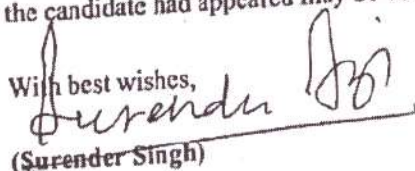 the candidate had appeared may be
With best wishes,
Surender
(Surender Singh)